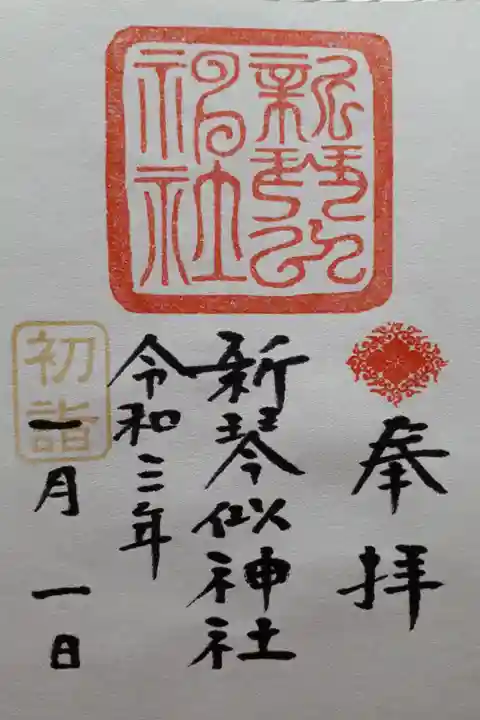 新琴似
神社
奉拝
新琴似神社
令和三年
初詣
一月一日